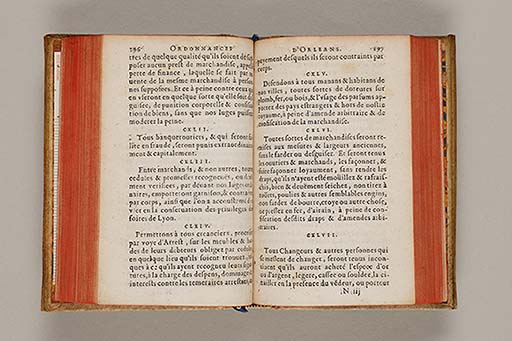 196 ORDONNANCES
tres de quelque qualité qu'ils soient de sup-
poser aucun prest de marchandise, appel
perte de finance, laquelle se fait par re-
uente de la mesme marchandise à person-
nes supposees. Et ce à peine contre ceux qui
en vseront en quelque sorte qu'elle soit de-
guisee, de punition corporelle & confisca-
tion de biens, sans que nos Iuges puissent
moderer la peine.
CXLII.
Tous banqueroutiers, & qui seront
faillite en fraude, seront punis extraordinaire-
ment & capitalement.
CXLIII.
Entre marchands, & non autres,
cedules & promesses recogneuës, ou
ment verifiees, par deuant nos Iuges
aires, emporteront garnison, & contrainte
par corps, ainsi que l'on a accoustumé
vser en la conseruation des priuileges
foires de Lyon.
CXLIV.
Permettons à tous creanciers,
par voye d'Arrest, sur les meubles &
dez de leurs debteurs obligez par cedule
en quelque lieu qu'ils soient trouuez,
ques à ce qu'ils ayent recogneu leurs
tures, à la charge des despens, dommages
interests contre les temeraires arrestans,
D'ORLEANS. 197
payement desquels ils seront contraints par
corps.
CXLV.
Defendons à tous manans & habitans de
nos villes, toutes sortes de dorures sur
plomb, fer, ou bois, & l'vsage des parfums ap-
portez des pays estrangers & hors de nostre
royaume, à peine d'amende arbitraire & de
confiscation de la marchandise.
CXLVI.
Toutes sortes de marchandises seront re-
mises aux mesures & largeurs anciennes,
sans le farder ou desguiser. Et seront tenus
les ouuriers & marchands, les façonner, &
faire façonner loyaument, sans rendre les
draps, qu'ils n'ayent esté mouillez & rafrais-
chis, bien & deuëment seichez, non tirez à
rouës, poulies & autres semblables engins,
non fardez de bourre, croye ou autre chose,
ne pressez en fer, d'airain, à peine de con-
fiscation desdits draps & d'amendes arbi-
traires.
CXLVII.
Tous Changeurs & autres personnes qui
se meslent de changer, seront tenus incon-
tinent qu'ils auront acheté l'espece d'or
ou d'argent, legere, cassee ou souldee, la ci-
sailler en la presence du vẽdeur, ou porteur
N iij